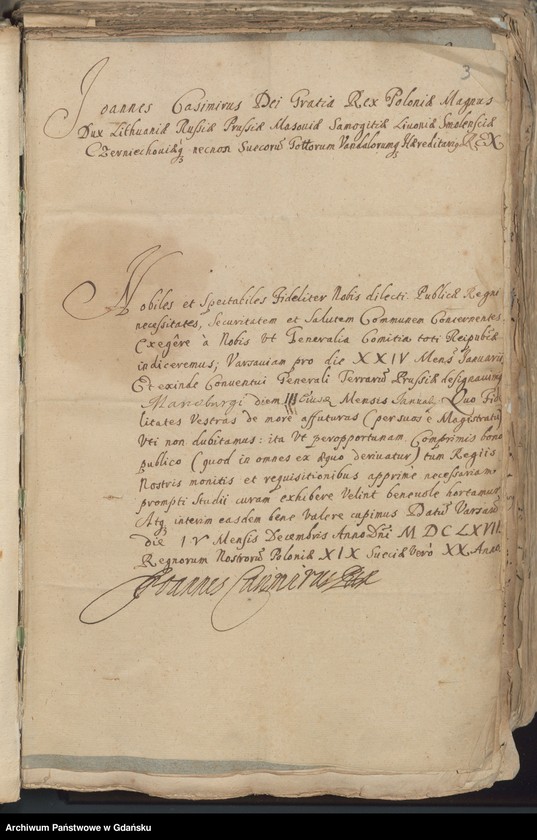 3
Joannes Casimirus Dei Gratia Rex Poloniæ Magnus
Dux Lithuaniæ Russiæ Prussiæ Masoviæ Samogitiæ Livoniæ Smolensciæ
Czerniechoviæq; necnon Suecorũ Gottorum Vandalorumq; Hæreditariq; REX
Nobiles et Spectabiles Fideliter Nobis dilecti. Publicæ Regni
necessitates, Securitatem et Salutem Communem Concernentes,
exegêre à Nobis Vt Generalia Comitia toti Reipublicæ
indiceremus; Varsaviam pro die XXIV Mens. Januarii
Et exinde Conventui Generali Terrarũ Prussiæ designavimq
Marieburgi diem III Ejusd. Mensis Quo Fid
litates Vestras de more affuturas (per suos è Magistratu)
Vti non dubitamus: ita Vt peropportunam Comprimis bono
publico (quod in omnes ex æquo derivatur) tum Regiis
Nostris monitis et requisitionibus apprimè necessariam
prompti Studii curam exhibere Velint benevole hortamur
Atq; interim easdem bene Valere cupimus Datũ Varsaviæ
die IV Mensis Decembris Anno Dñi MDCLXVII.
Regnorum Nostrorũ Poloniæ XIX Sueciæ Verò XX. Anno
Joannes Casimirus Rex
Archiwum Państwowe w Gdańsku